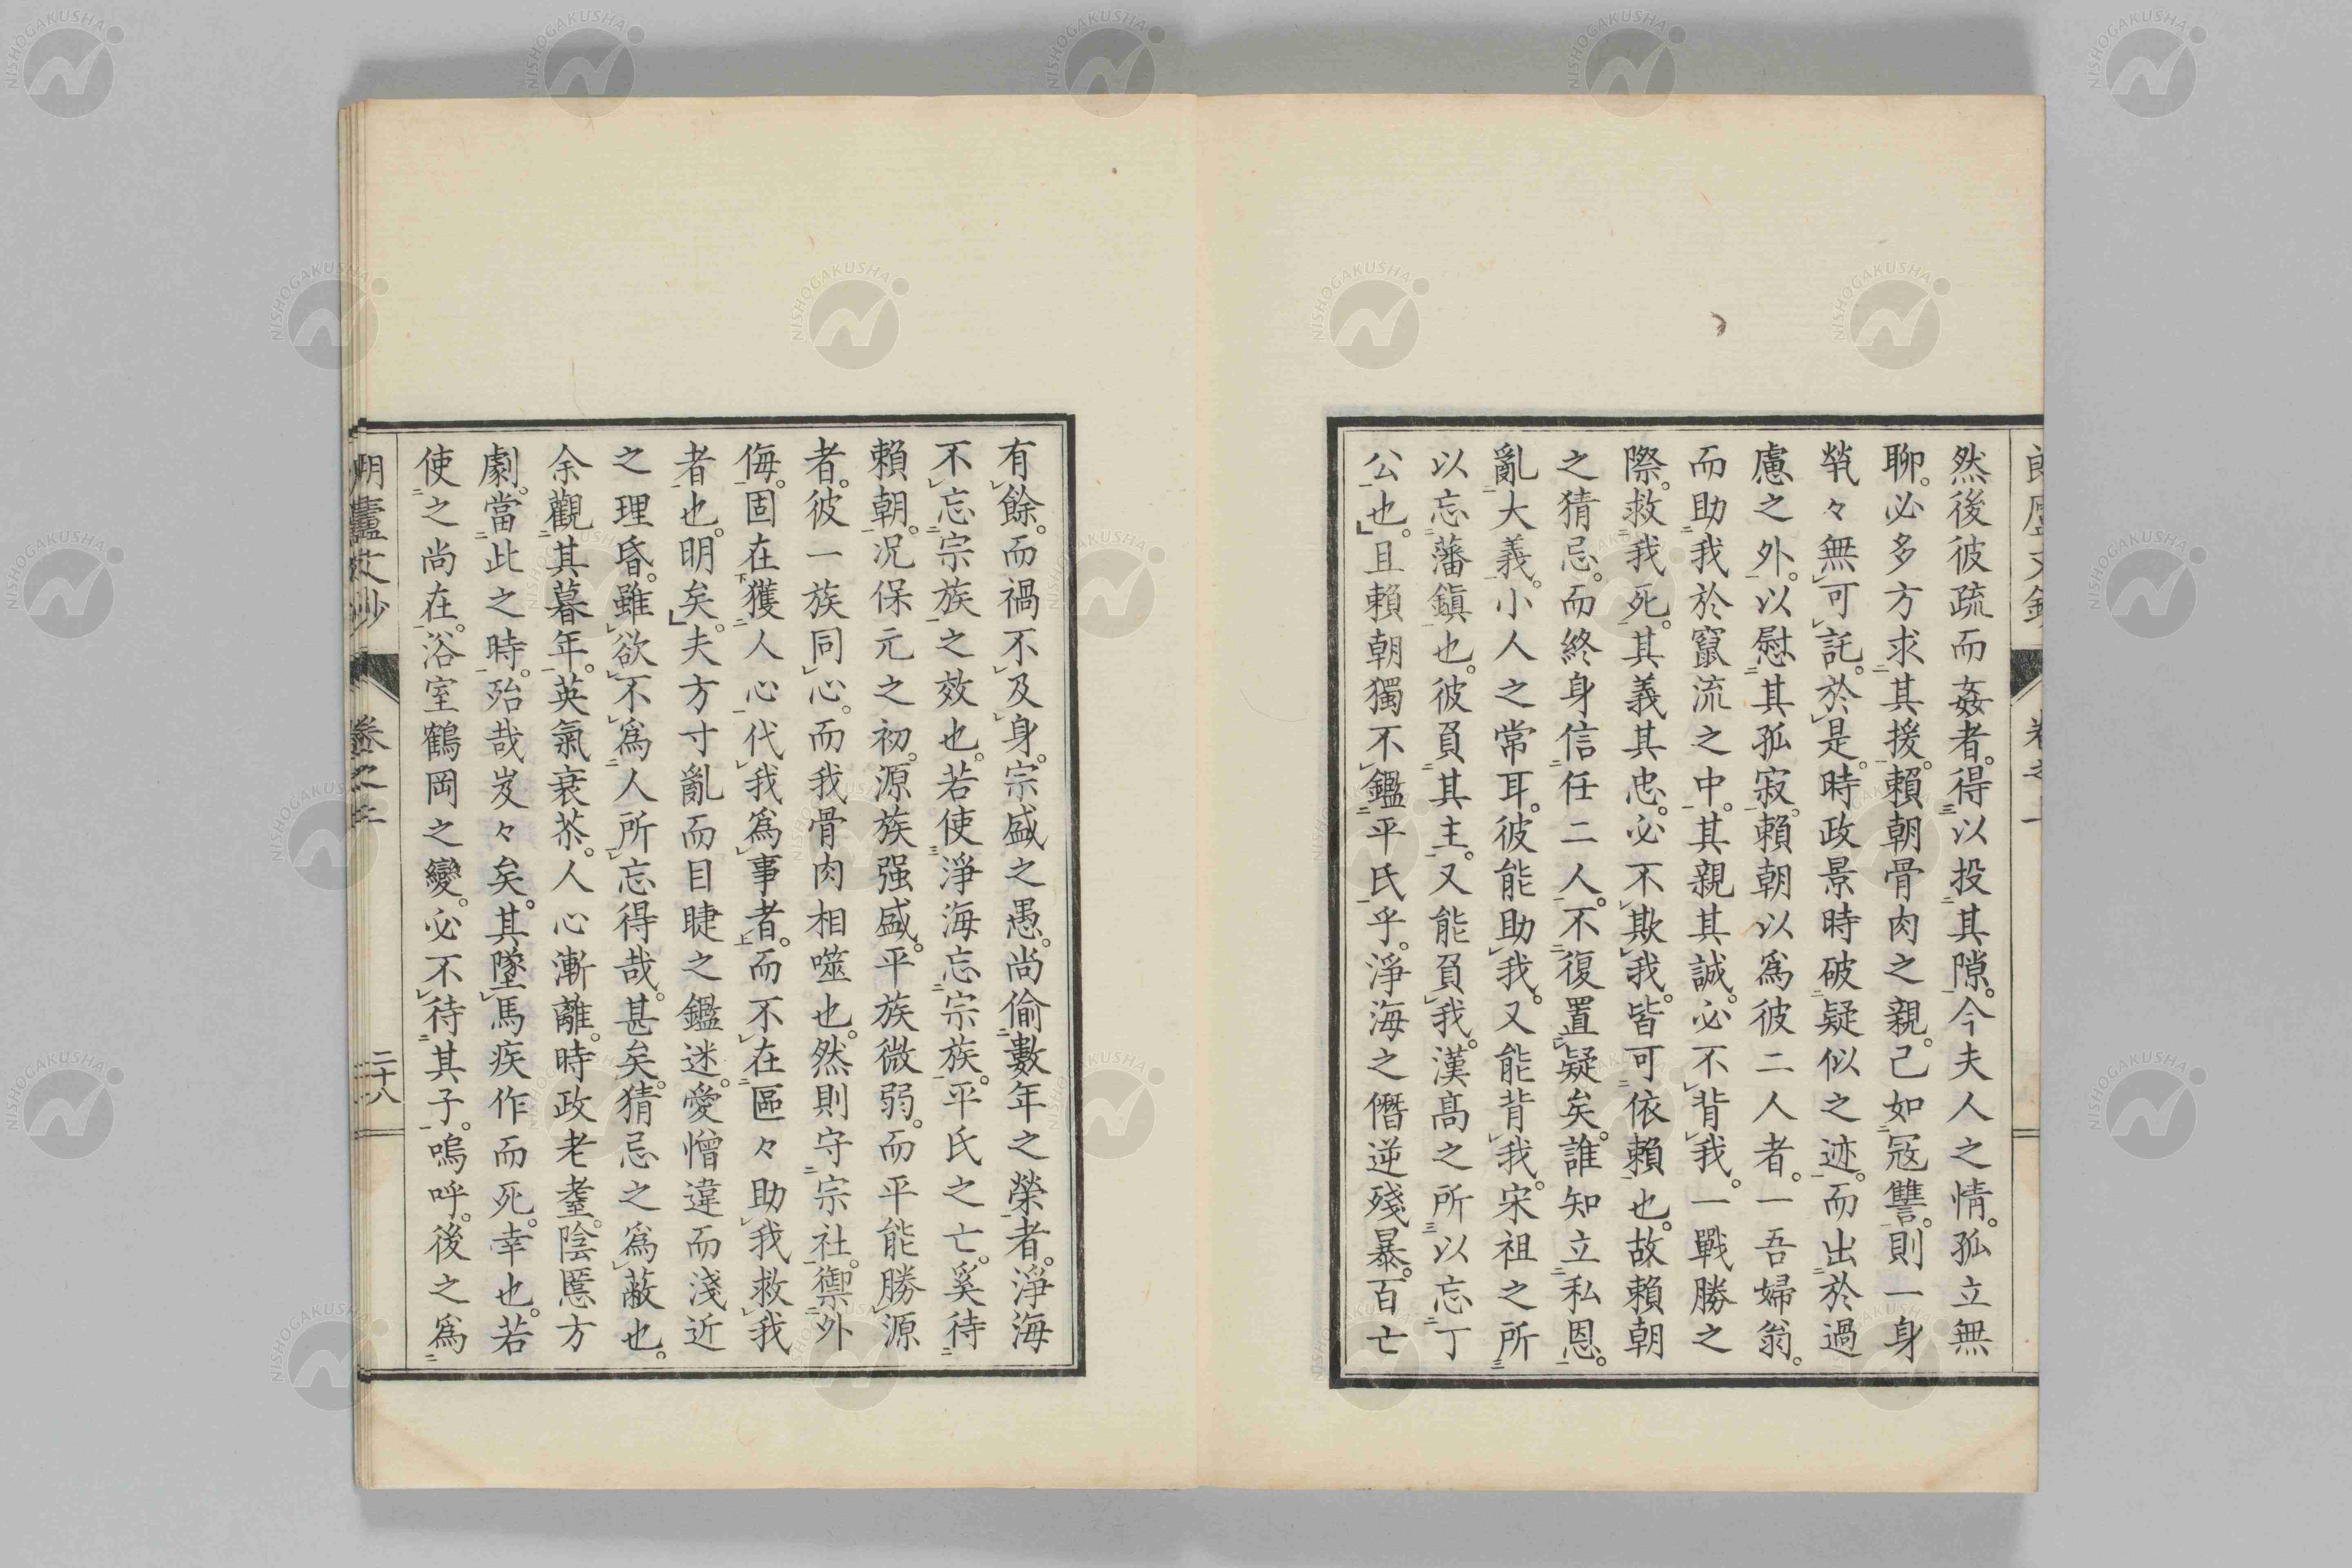 然後彼疏而姦者。得以投其隙。今夫人之情。孤立無
聊。必多方求其援。賴朝骨肉之親。己如寇讐。則一身
煢々無可託。於是。時政景時破疑似之迹。而出於過
慮之外。以慰其孤寂。賴朝以爲彼二人者。一吾婦翁。
而助我於竄流之中。其親其誠。必不背我。一戰勝之
際。救我死。其義其忠。必不欺我。皆可依賴也。故賴朝
之猜忌。而終身信任二人。不復置疑矣。誰知立私恩。
亂大義。小人之常耳。彼能助我。又能背我。宋祖之所
以忘藩鎭也。彼負其主。又能負我。漢高之所以忘丁
公也。且賴朝獨不鑑平氏乎。淨海之僭逆殘暴。百亡
有餘。而禍不及身。宗盛之愚。尚偷數年之榮者。淨海
不忘宗族之效也。若使淨海忘宗族。平氏之亡。奚待
賴朝。况保元之初。源族强盛。平族微弱。而平能勝源
者。彼一族同心。而我骨肉相噬也。然則守宗社。禦外
侮。固在獲人心代我爲事者。而不在區々助我救我
者也。明矣。夫方寸亂而目睫之鑑迷。愛憎違而淺近
之理昏。雖欲不爲人所忘得哉。甚矣。猜忌之爲蔽也。
余觀其暮年。英氣衰苶。人心漸離。時政老耋。陰慝方
劇。當此之時。殆哉岌々矣。其墜馬疾作而死。幸也。若
使之尚在。浴室鶴岡之變。必不待其子。嗚呼。後之爲
卷之二
二十八
NISHOGAKUSHA